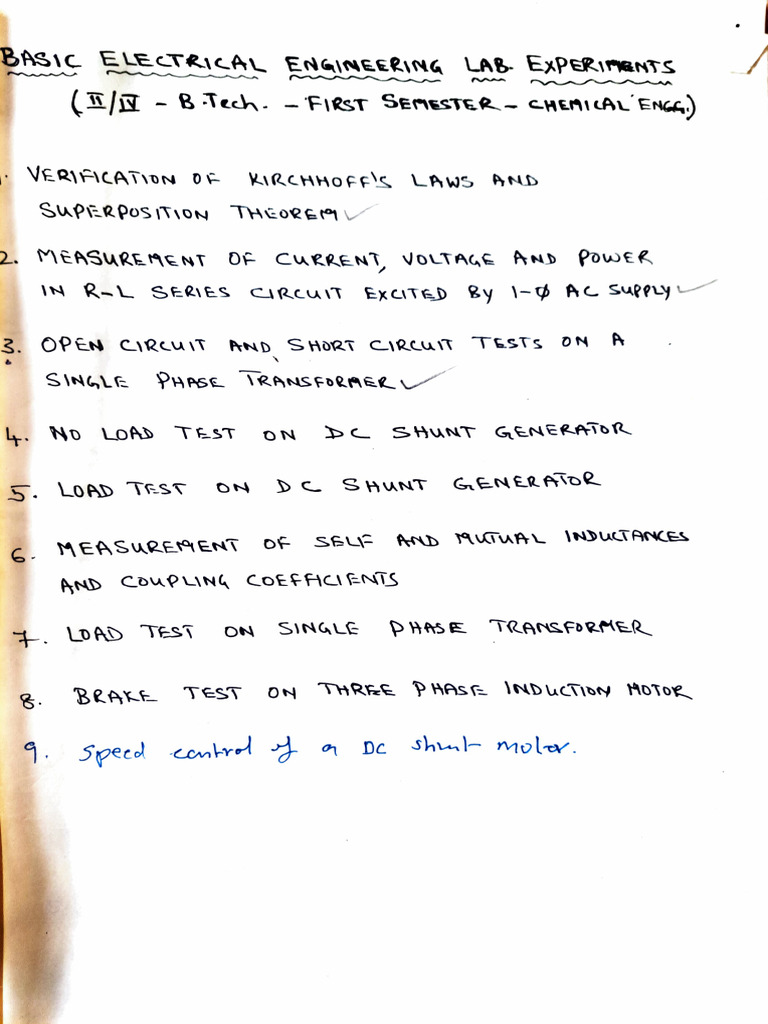 BASIC ELECTRICAL ENGINEERING LAB. EXPERIMENTS
(II/IV - B.Tech. - FIRST SEMESTER - CHEMICAL ENGG.)
1. VERIFICATION OF KIRCHHOFF'S LAWS AND
SUPERPOSITION THEOREM ✓
2. MEASUREMENT OF CURRENT, VOLTAGE AND POWER
IN R-L SERIES CIRCUIT EXCITED BY 1-Ø AC SUPPLY ✓
3. OPEN CIRCUIT AND SHORT CIRCUIT TESTS ON A
SINGLE PHASE TRANSFORMER ✓
4. NO LOAD TEST ON DC SHUNT GENERATOR
5. LOAD TEST ON DC SHUNT GENERATOR
6. MEASUREMENT OF SELF AND MUTUAL INDUCTANCES
AND COUPLING COEFFICIENTS
7. LOAD TEST ON SINGLE PHASE TRANSFORMER
8. BRAKE TEST ON THREE PHASE INDUCTION MOTOR
9. Speed control of a DC shunt motor.